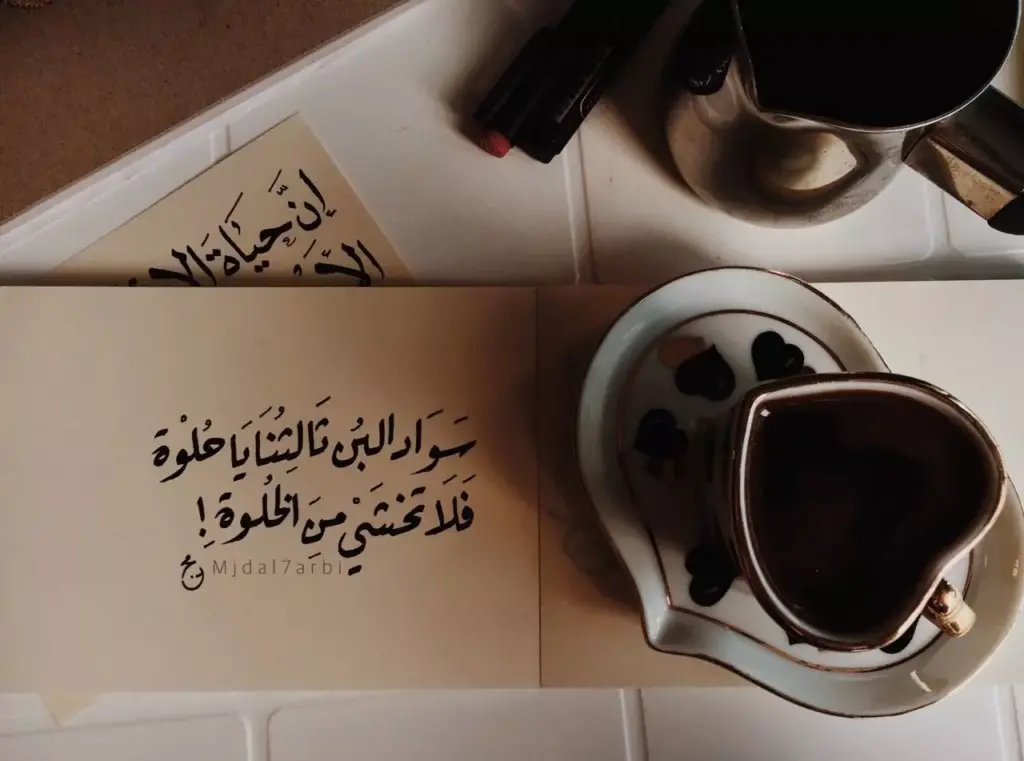 إنَّ حَيَاةَ
سَوَاد البُن ثَالِثُنَا يَا حُلْوة
فَلَا تَخشَيْ مِنَ الخُلوة !
Mjdal7arbi